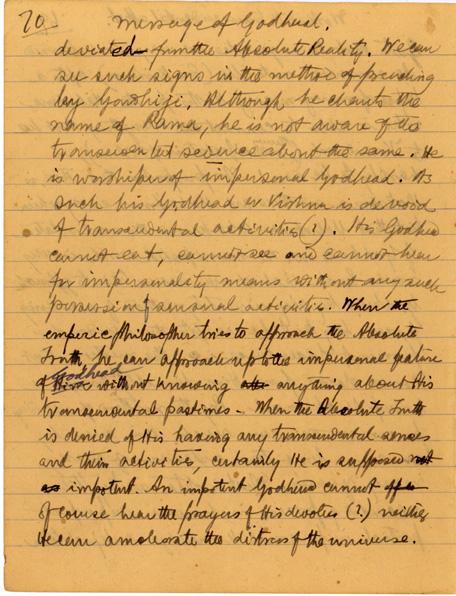 70 Message of Godhead.
deviated from the Absolute Reality. We can
see such signs in the method of preaching
by Gandhiji. Although he chants the
name of Rama, he is not aware of the
transcendental science about the same. He
is worshiper of impersonal Godhead. As
such his Godhead or Krishna is devoid
of transcendental activities (?). His Godhead
cannot eat, cannot see and cannot hear
for impersonality means without any such
possession of sensual activities. When the
emperic Philosopher tries to approach the Absolute
Truth, he can approach up to the impersonal feature
of Godhead without knowing anything about His
transcendental pastimes - When the Absolute Truth
is denied of His having any transcendental senses
and their activities, certainly He is supposed
as impotent. An impotent Godhead cannot
of course hear the prayers of His devotee (?) neither
He can ameliorate the distress of the universe.